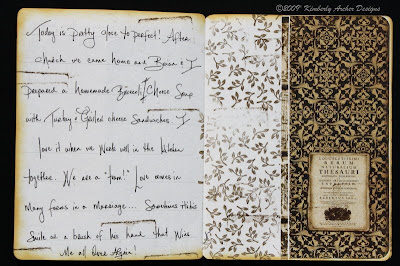 ©2009 Kimberly Archer Designs
Today is pretty close to perfect! After
church we came home and Brian & I
prepared a homemade Broccoli/Cheese Soup
with Turkey & Grilled cheese Sandwiches. I
love it when we work well in the kitchen
together. We are a "team!" Love comes in
many forms in a marriage... Sometimes it's his
Smile or a brush of his hand that Wins
Me all Over Again!
LOCUPLETISSIMI
RERUM
NATURALIUM
THESAURI